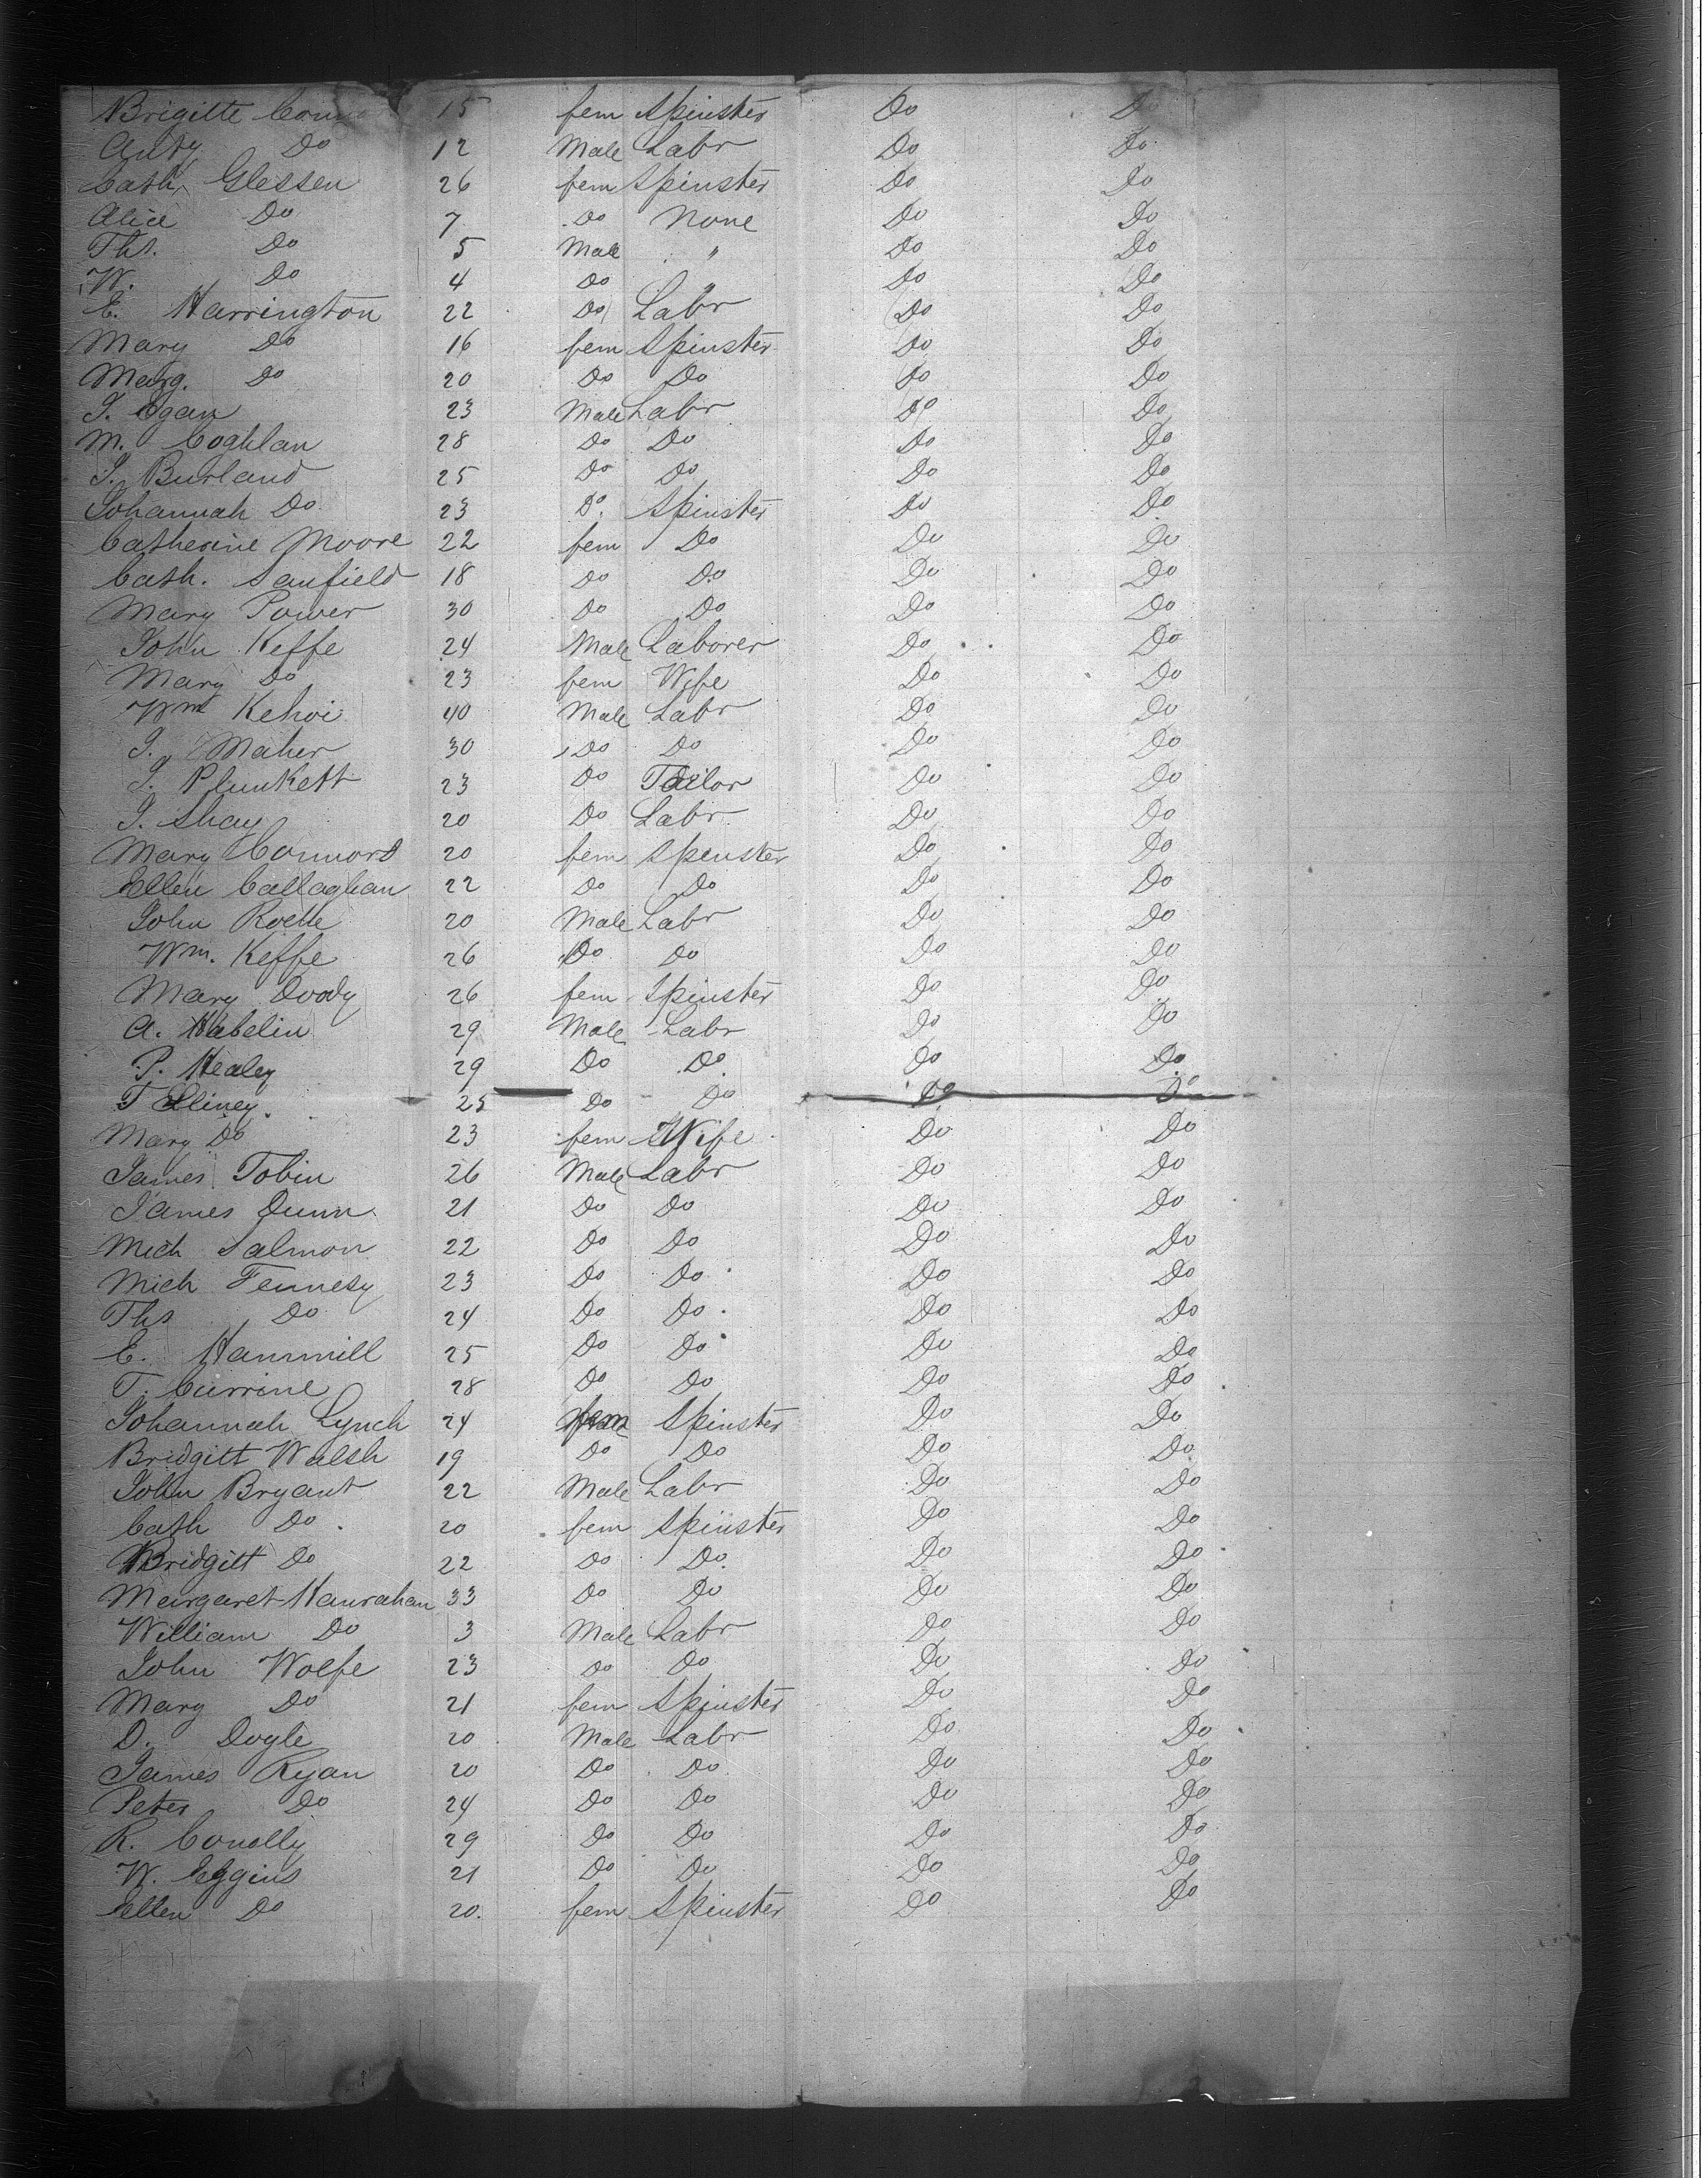 Brigitte Conno 15 fem Spinster Do Do
Andy Do 12 Male Labr Do Do
Cath. Glessen 26 fem Spinster Do Do
Alice Do 7 Do None Do Do
Ths. Do 5 Male " Do Do
W. Do 4 Do " Do Do
E. Harrington 22 Do Labr Do Do
Mary Do 16 fem Spinster Do Do
Marg. Do 20 Do Do Do Do
J. Egan 23 Male Labr Do Do
M. Coghlan 28 Do Do Do Do
J. Burland 25 Do Do Do Do
Johannah Do 23 Do. Spinster Do Do
Catherine Moore 22 fem Do Do Do
Cath. Sanfield 18 Do Do Do Do
Mary Power 30 Do Do Do Do
John Keffe 24 Male Laborer Do Do
Mary Do 23 fem Wife Do Do
Wm Kehoi 40 Male Labr Do Do
J. Maher 30 Do Do Do Do
J. Plunkett 23 Do Tailor Do Do
J. Shay 20 Do Labr Do Do
Mary Connors 20 fem Spinster Do Do
Ellen Callaghan 22 Do Do Do Do
John Roche 20 Male Labr Do Do
Wm. Keffe 26 Do Do Do Do
Mary Doody 26 fem Spinster Do Do
A. Habelin 29 Male Labr Do Do
P. Healey 29 Do Do Do Do
T 25 Do Do Do Do
Mary Do 23 fem Wife Do Do
James Tobin 26 Male Labr Do Do
James Dunn 21 Do Do Do Do
Mich Salmon 22 Do Do Do Do
Mich Fennesy 23 Do Do Do Do
Ths Do 24 Do Do Do Do
E. Hammill 25 Do Do Do Do
T. Currine 28 Do Do Do Do
Johannah Lynch 24 fem Spinster Do Do
Bridgitt Walsh 19 Do Do Do Do
John Bryant 22 Male Labr Do Do
Cath Do 20 fem Spinster Do Do
Bridgitt Do 22 Do Do Do Do
Margaret Hanrahan 33 Do Do Do Do
William Do 3 Male Labr Do Do
John Wolfe 23 Do Do Do Do
Mary Do 21 fem Spinster Do Do
D. Doyle 20 Male Labr Do Do
James Ryan 20 Do Do Do Do
Peter Do 24 Do Do Do Do
R. Conolly 29 Do Do Do Do
W. Eggins 21 Do Do Do Do
Ellen Do 20. fem Spinster Do Do